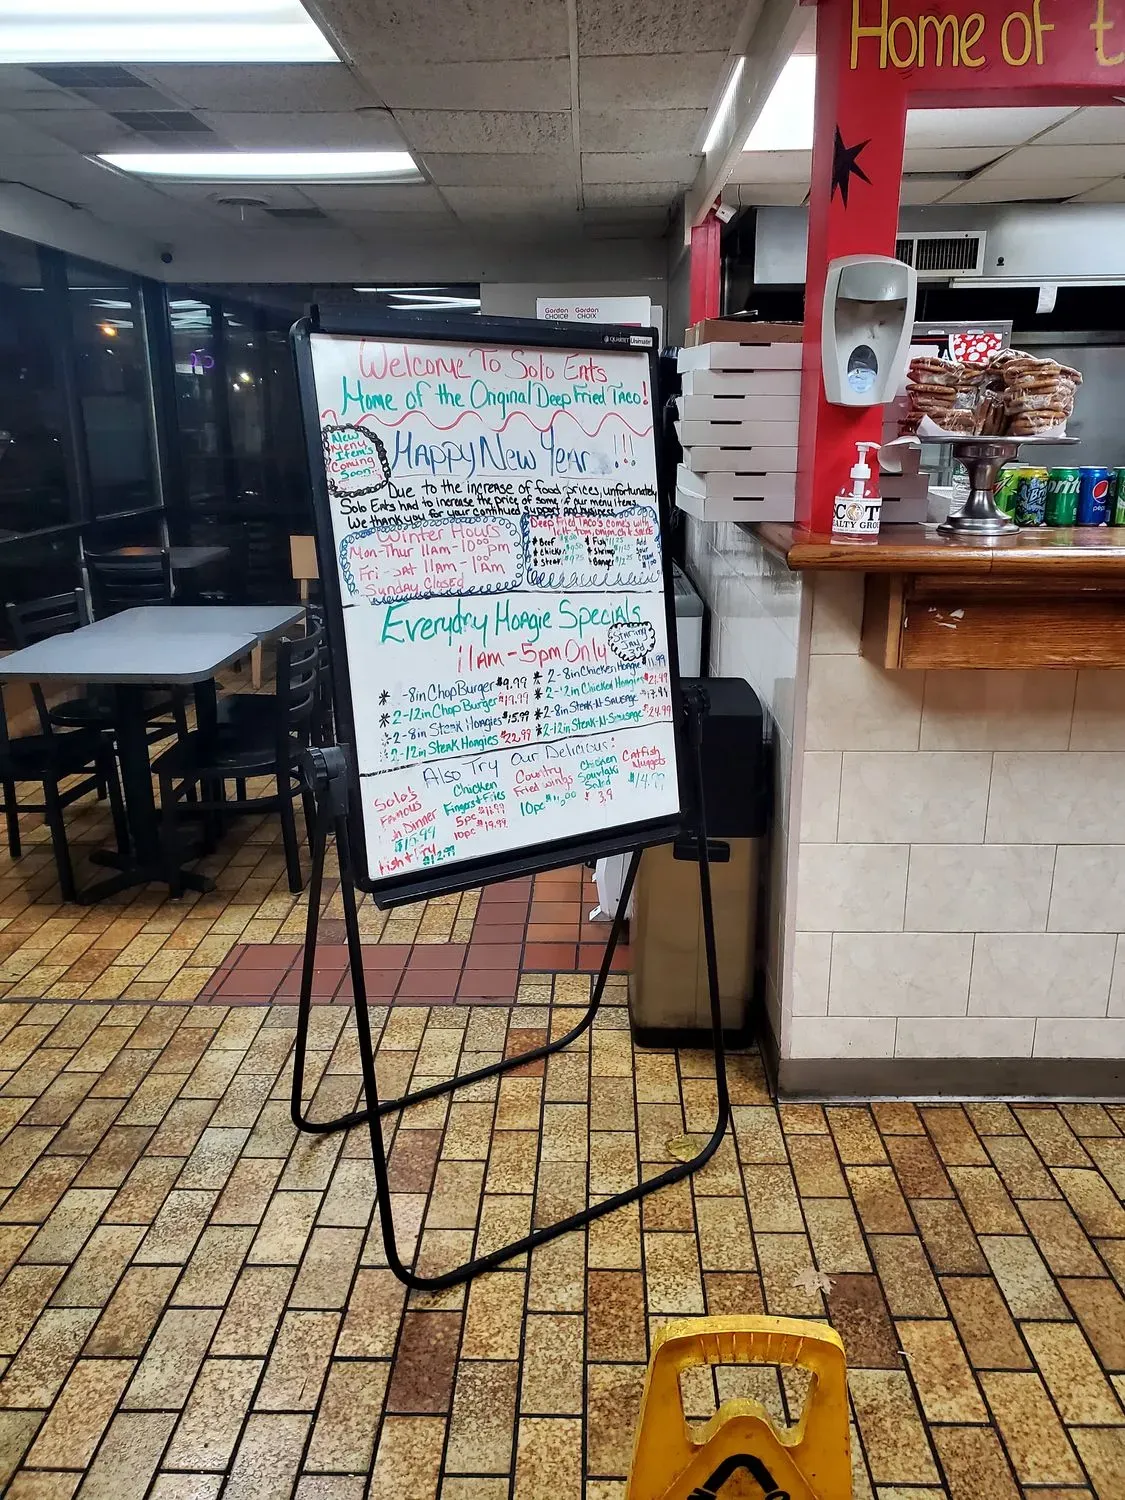 Home of t
Gordon Gordon
CHOICE CHOIX
QUARTET Unimate
Welcome To Solo Eats
Home of the Original Deep Fried Taco!
New
Menu
Item's
Coming
Soon
Happy New Year !!!
Due to the increase of food prices, unfortunately
Solo Eats had to increase the price of some of our menu items.
We thank you for your continued support and business
Winter Hours
Mon-Thur 11am-10pm
Fri-Sat 11am-1Am
Sunday Closed
Deep Fried Taco's comes with
tom, onion, ch &
* Beef
* chicken
* steak
* Fish
* shrimp
* Banger
Add
Sour
Cream
Everyday Hoagie Specials
11am-5pm Only
Starting
Jan
3rd
* -8in Chop Burger $9.99
* 2-12in Chop Burger $19.99
2-8in Steak Hoagies $15.99
2-12in Steak Hoagies $22.99
* 2-8in Chicken Hoagie 11.99
* 2-12in Chicken Hoagies $21.99
* 2-8in Steak-N-Sausage $17.99
* 2-12in Steak-N-Sausage $24.99
Also Try Our Delicious:
Solo's
Famous
Dinner
Fish & Fry
$12.99
Chicken
Fingers & Fries
5pc $11.99
10pc $19.99
Country
Fried Wings
10pc
Chicken
Souvlaki
Salad
Catfish
Nuggets
SCOT
ALTY GRO
sprite
pepsi